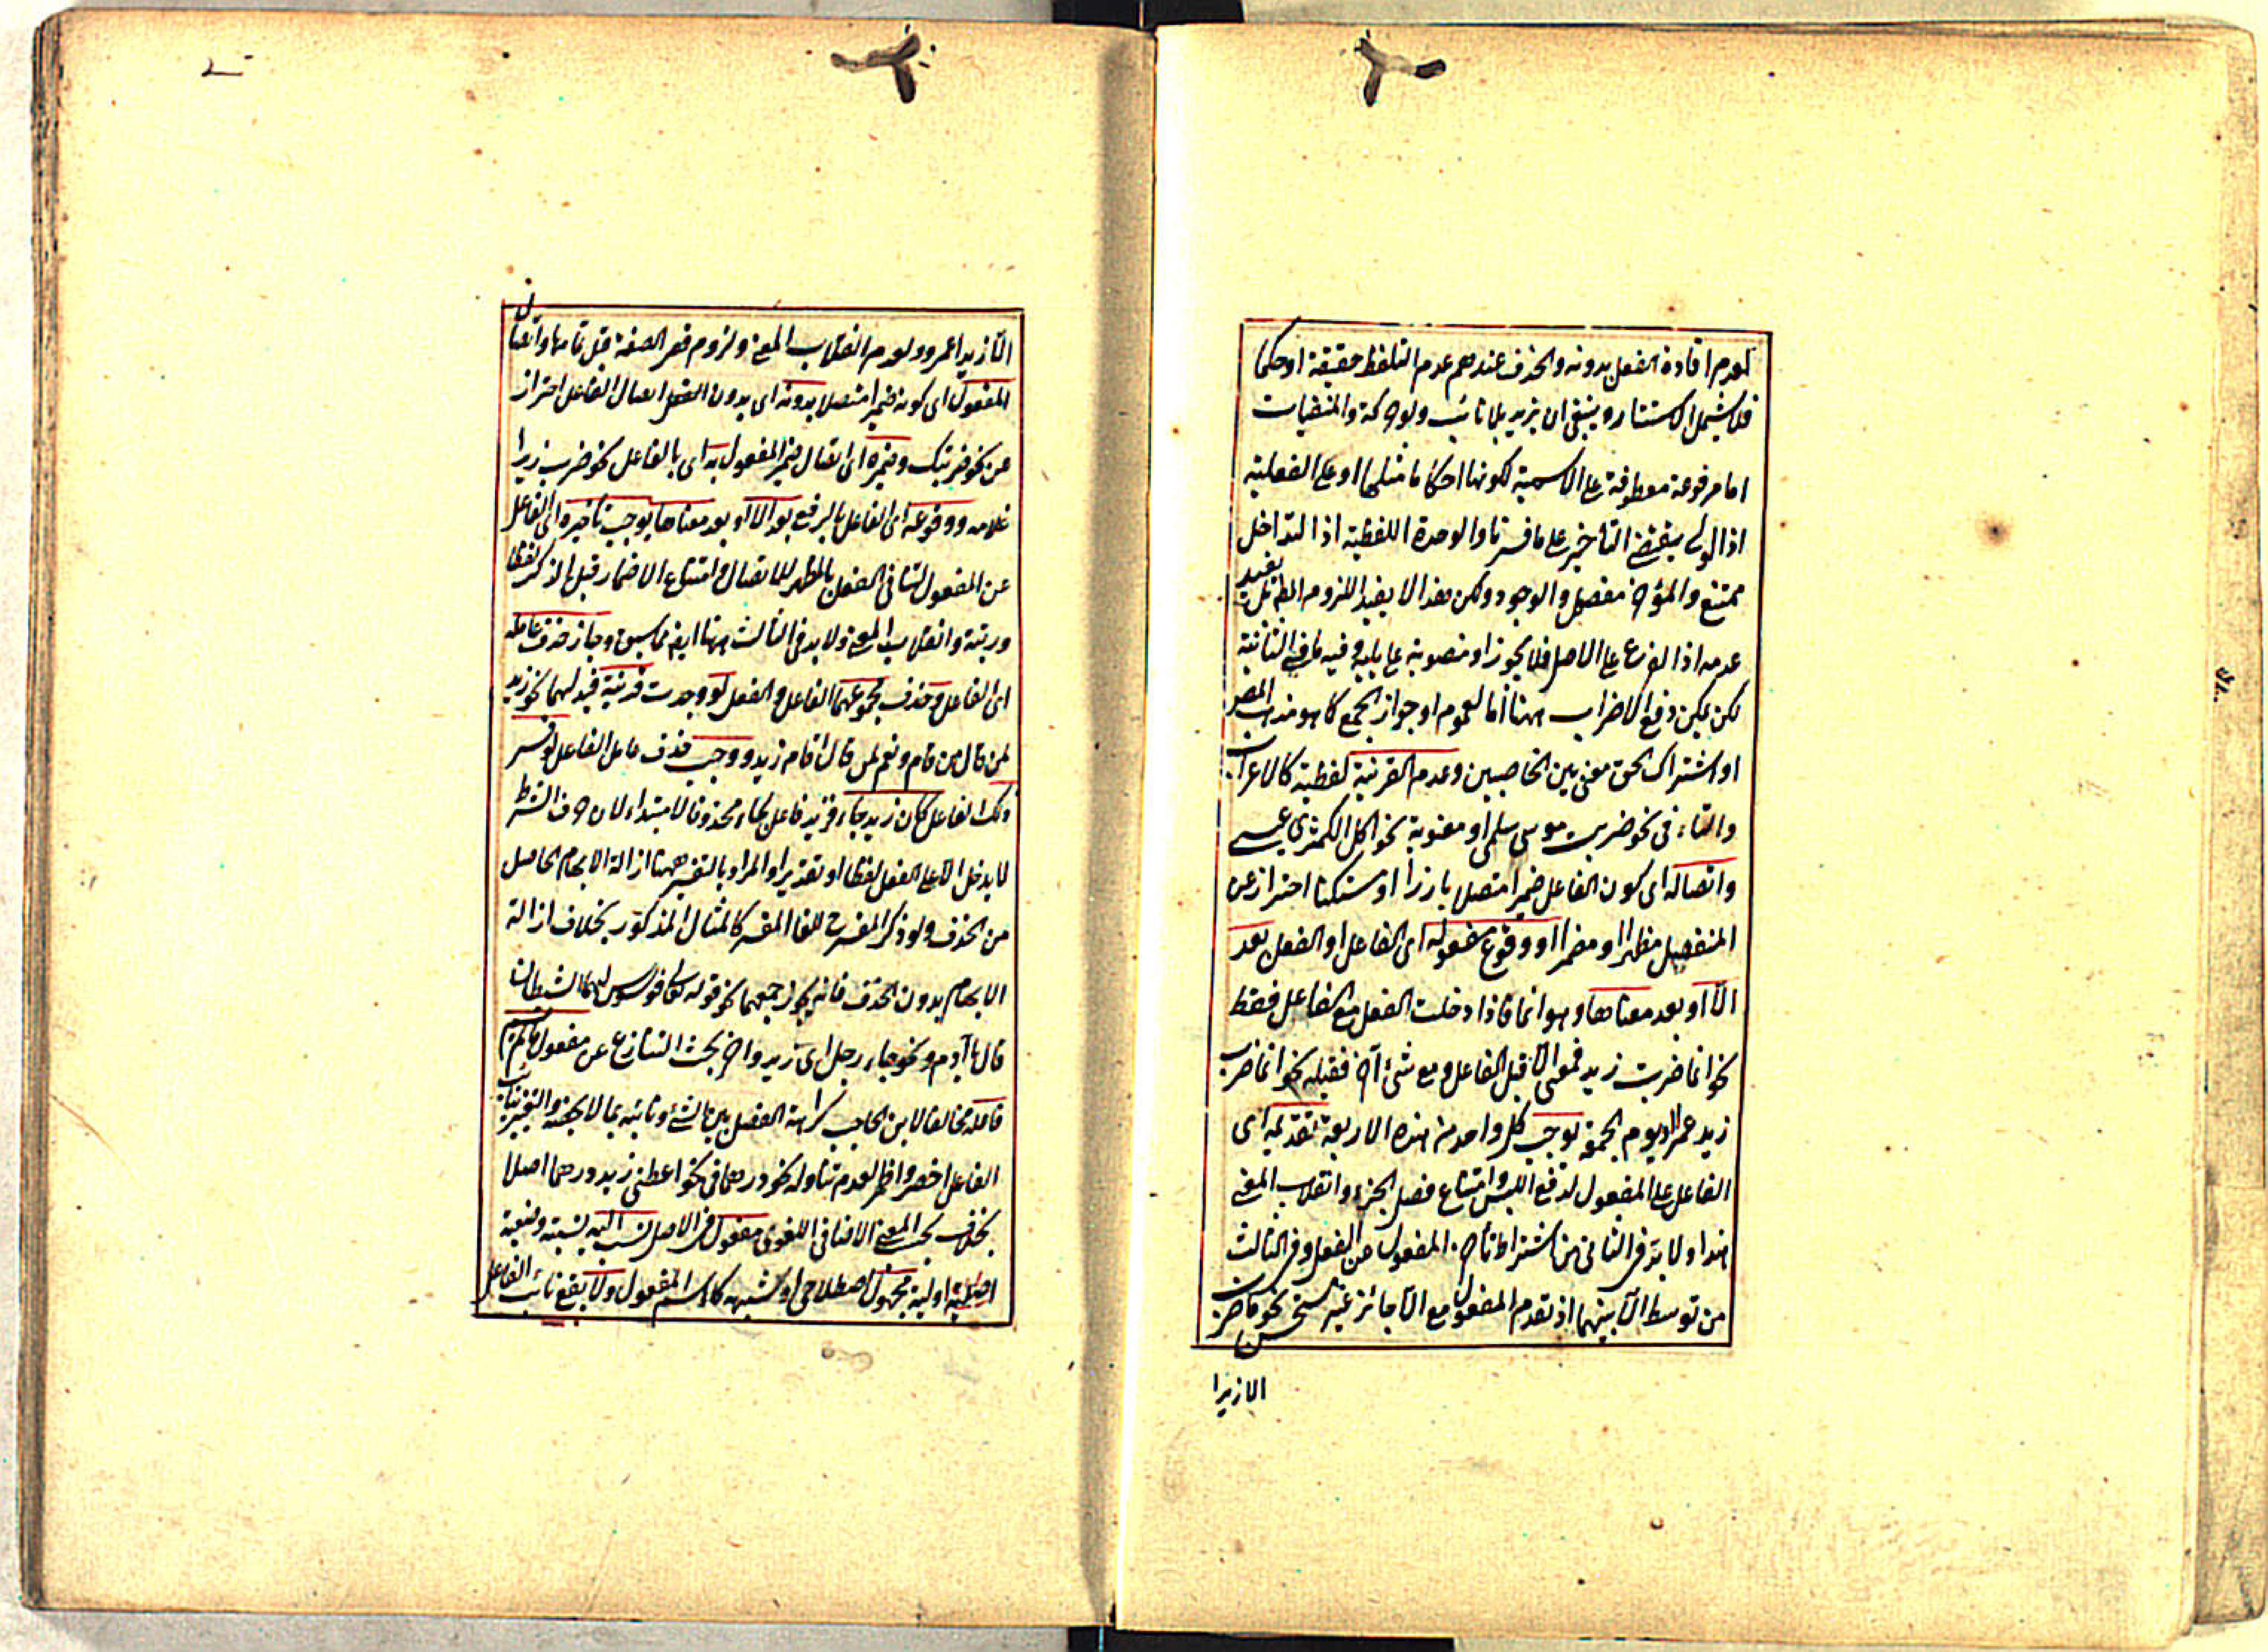 لعدم افادة الفعل بدونه والحذف عندهم عدم التلفظ حقيقة او حكما
فلا يشمل الاستتار وينبغى ان يزيد بلا نائب ولوحكة والمنفيات
اما مرفوعة معطوفة على الاسمية لكونها احكاما مثلها او على الفعلية
اذ الواو يقتضى التأخير على ما فسرنا والوحدة اللفظية اذ التداخل
ممتنع والمؤخر مفصل والوجود ولكن هذا لا يفيد اللزوم
عدمه اذ الفرع على الاصل فلا يجوز او منصوبة على وفيه ما فى الثانية
لكن يمكن دفع الاضراب ههنا اما لعموم او جواز الجمع كما هو مذهب المص
او اشتراك الحق معنى بين الخاصيين وعدم القرينة لفظية كالاعراب
والتاء فى نحو ضربت موسى سلمى او معنوية نحو اكل الكمثرى عيسى
واتصاله اى كون الفاعل ضميرا متصلا بارزا او مستكنا احتراز عن
المنفصل مظهرا او مضمرا او وقوع مفعوله اى الفاعل او الفعل بعد
الا او بعد معناها وهو انما فاذا دخلت الفعل مع الفاعل فقط
نحو انما ضربت زيد فمعنى الا قبل الفاعل ومع شئ آخر فقبله نحو انما ضرب
زيد عمرا يوم الجمعة يوجب كل واحد من هذه الاربعة تقديمه اى
الفاعل على المفعول لدفع اللبس وامتناع فصل الجزء وانقلاب المعنى
هذا ولا بد فى الثانى من اشتراط تأخر المفعول عن الفعل وفى الثالث
من توسط الا بينهما اذ تقدم المفعول مع الا جائز غير مستحسن نحو ما ضرب
الا زيدا
الا زيدا عمرو ولعدم انقلاب المعنى ولزوم قصر الصفة قبل تمامها واتصال
المفعول اى كونه ضميرا متصلا بدونه اى بدون الفعل اتصال الفاعل احتراز
عن نحو ضربتك وضميره اى اتصال ضمير المفعول به اى بالفاعل نحو ضرب زيدا
غلامه ووقوعه اى الفاعل بالرفع بعد الا او بعد معناها يوجب تأخيره اى الفاعل
عن المفعول لتنافى الفصل بالمظهر للاتصال وامتناع الاضمار قبل الذكر لفظا
ورتبة وانقلاب المعنى ولا بد فى الثالث ههنا ايضا مما سبق وجاز حذف عامله
اى الفاعل وحذف مجموعهما الفاعل والفعل لو وجدت قرينة قيد لهما نحو زيد
لمن قال من قام ونعم لمن قال اقام زيد ووجب حذف عامل الفاعل لو فسر
ذلك الفاعل كان زيد جاء فزيد فاعل لجاء محذوفا لا مبتداء لان حرف الشرط
لا يدخل الا على الفعل لفظا او تقديرا والمراد بالتفسير ههنا ازالة الابهام الحاصل
من الحذف ولو ذكر المفسر للغا المفسر كالمثال المذكور بخلاف ازالة
الابهام بدون الحذف فانه يجوز جمعهما نحو قوله تعالى فوسوس لهما الشيطان
قال يا آدم ونحو جاء رجل اى زيد واخر بحث التنازع عن مفعول ما لم يسم
فاعله مخالفا لابن الحاجب كراهة الفصل بين الشئ ونائبه بما لا يجنسه والتعبير بنائب
الفاعل اخصر واظهر لعدم تناوله نحو درهما فى نحو اعطى زيد درهما اصلا
بخلاف بحسب المعنى الاضافى اللغوى مفعول فى الاصل نسب اليه نسبة وضعية
اصلية اولية مجهول اصطلاحى او شبهه كاسم المفعول ولا يقع نائب الفاعل